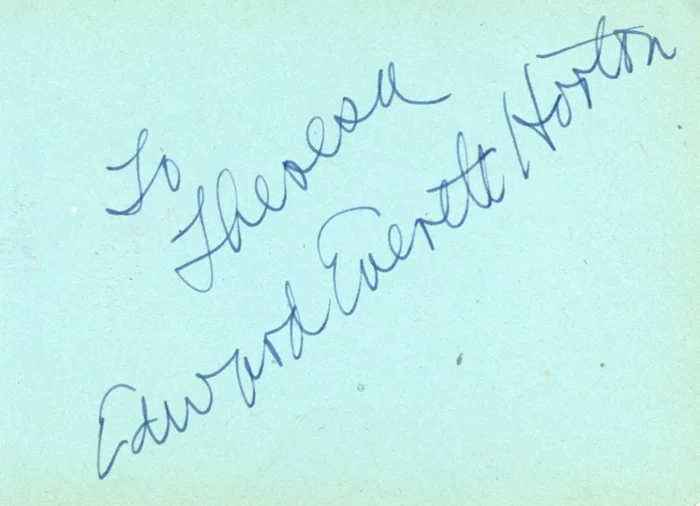 To
Theresa
Edward Everett Horton